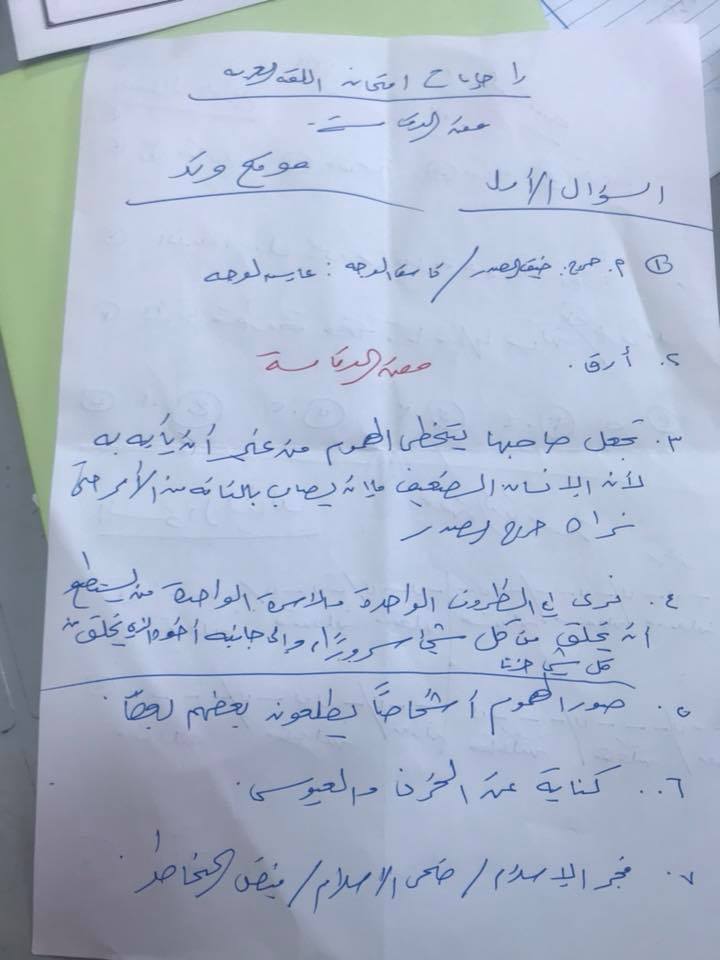 امتحان اللغة العربية
معن الدعاسة
السؤال الأول موقع وتد
① ٢. حرج: ضيق الصدر / كاسف الوجه: عابس الوجه
٢. أرق.
معن الدعاسة
٣. تجعل صاحبها يتخطى الهموم من غير أن يأبه به
لأن الإنسان الضعيف يصاب بالتافه من الأمر حتى
نراه حرج الصدر
٤. نرى في الظروف الواحدة والأسرة الواحدة من يستطيع
أن يخلق من كل شيء سرورًا، وإلى جانبه أخوه الذي يخلق من
كل شيء حزنا
٥. صور الهموم أشخاصًا يطلعون بعضهم بعضًا.
٦. كناية عن الحزن والعبوس.
٧. فجر الإسلام / ضحى الإسلام / فيض الخاطر.